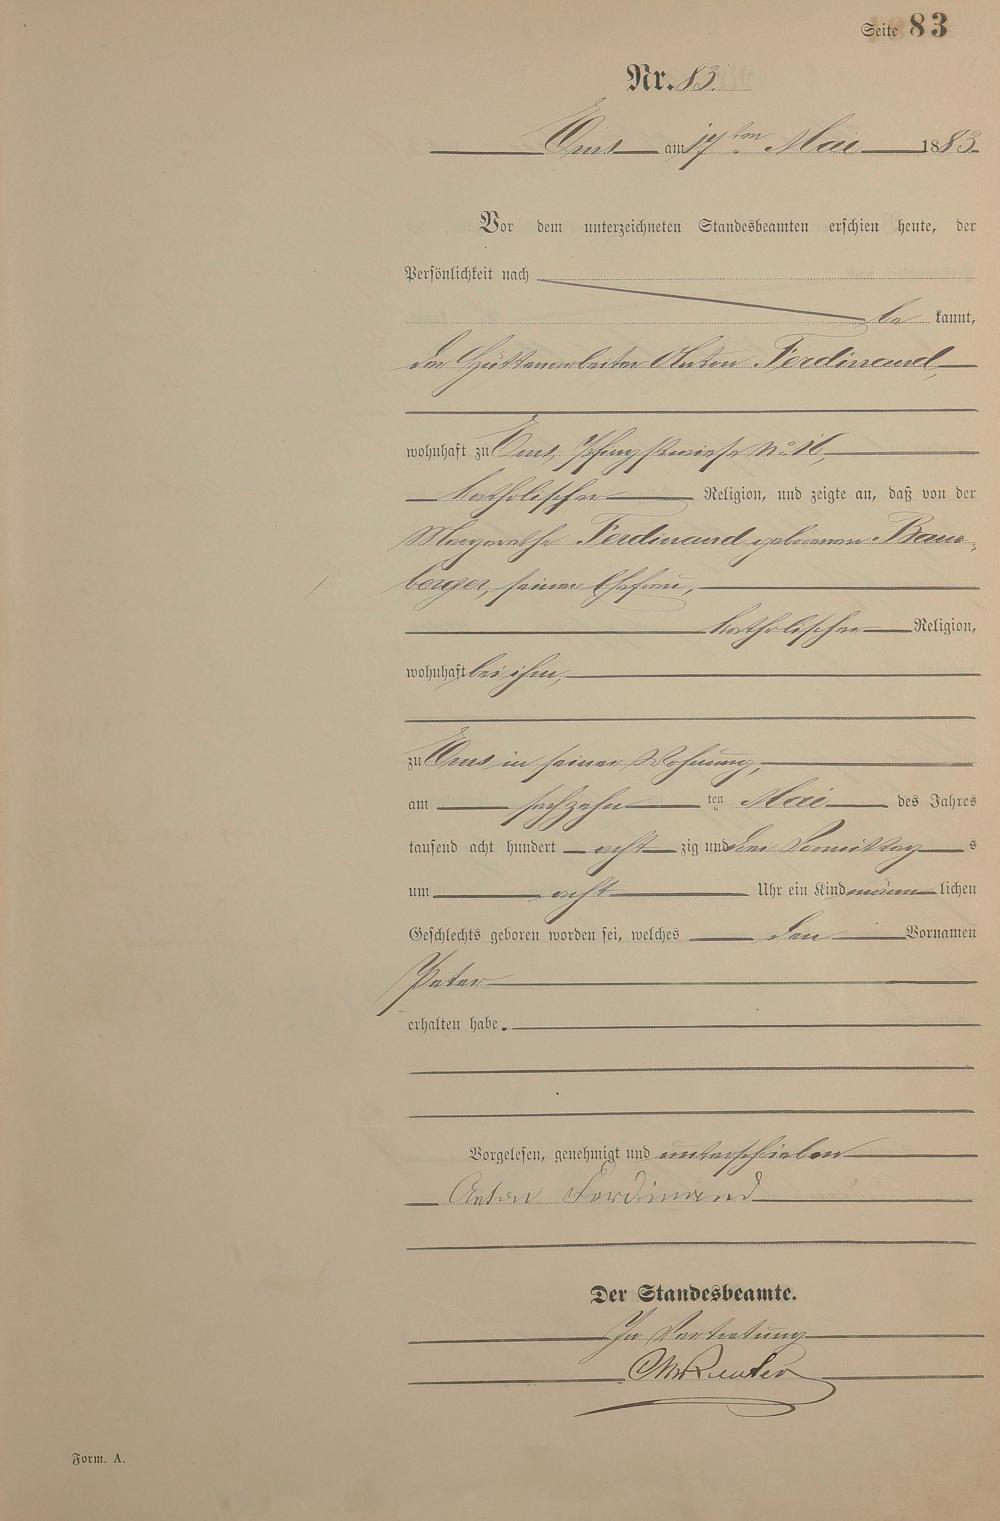 Seite 83
Nr. 83.
Ems am 17ten Mai 1883.
Vor dem unterzeichneten Standesbeamten erschien heute, der
Persönlichkeit nach
be kannt,
der Hüttenarbeiter Anton Ferdinand,
wohnhaft zu Ems, Pfingstwiese No
katholischer Religion, und zeigte an, daß von der
Margarethe Ferdinand geborenen
berger, seiner Ehefrau,
katholischer Religion,
wohnhaft bei ihm,
zu Ems in seiner Wohnung,
am sechzehn ten Mai des Jahres
tausend acht hundert acht zig und drei Vormittag s
um acht Uhr ein Kind männ lichen
Geschlechts geboren worden sei, welches den Vornamen
Peter
erhalten habe.
Vorgelesen, genehmigt und unterschrieben
Anton Ferdinand
Der Standesbeamte.
In Vertretung
Form. A.